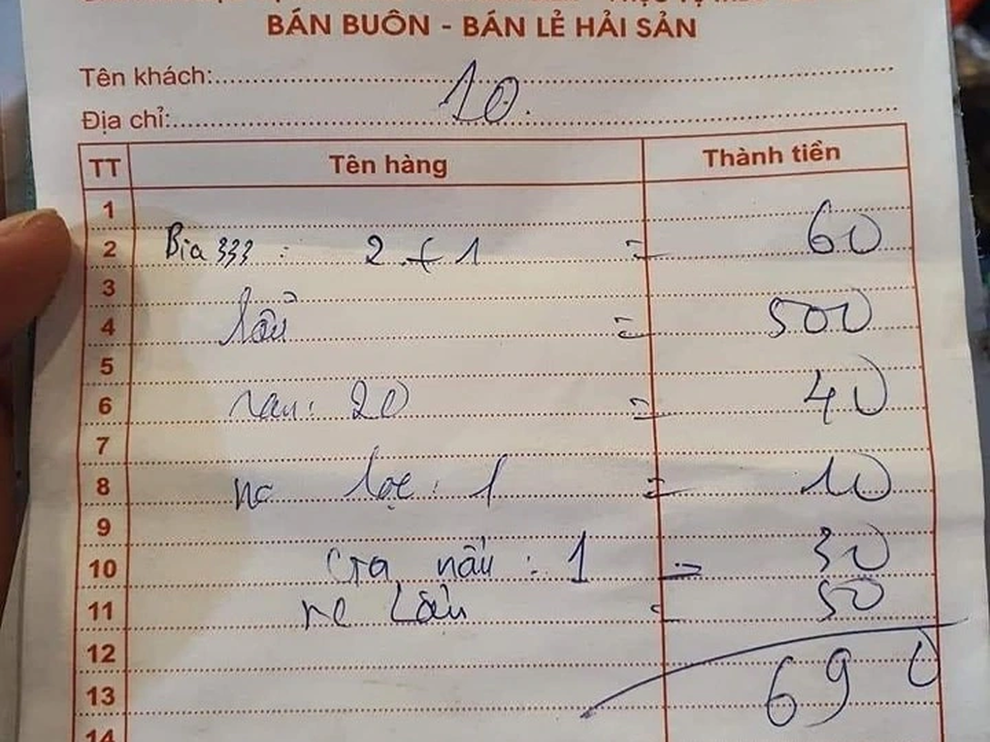 BÁN BUÔN - BÁN LẺ HẢI SẢN
Tên khách:
10.
Địa chỉ:
TT Tên hàng Thành tiền
1
2 Bia 333 : 2 + 1 = 60
3
4 lẩu = 500
5
6 rau: 20 = 40
7
8 nc lọc : 1 = 10
9
10 nấu : 1 = 30
11 lẩu = 50
12
13 690
14